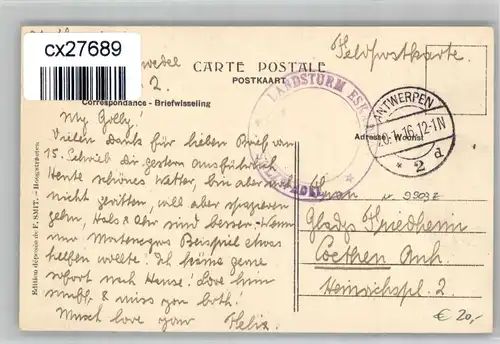 cx27689
wedel
2.
Feldpostkarte.
CARTE POSTALE
POSTKAART
Correspondance - Briefwisseling
LANDSTURM ESK
ANTWERPEN
20.1.16.12-1N
* 2 d
Adresse - Woonst
My Golly!
Vielen Dank für lieben Brief vom
15. Schrieb Dir gestern ausführlich
Heute schönes Wetter, bin aber mit
nicht geritten, will aber spazieren
gehn, Hals & Ohr sind besser. Wenn
nur Montenegros Beispiel etwas
helfen wollte! Ich käme gerne
sofort nach Hause! Love him
much & miss you both!
Much love your Felix
Edition déposée de F. SMIT. - Hoogstraeten
Frau
9903Z
Gladys Friedheim
Coethen Anh.
Heinrichspl. 2.
€ 20,-